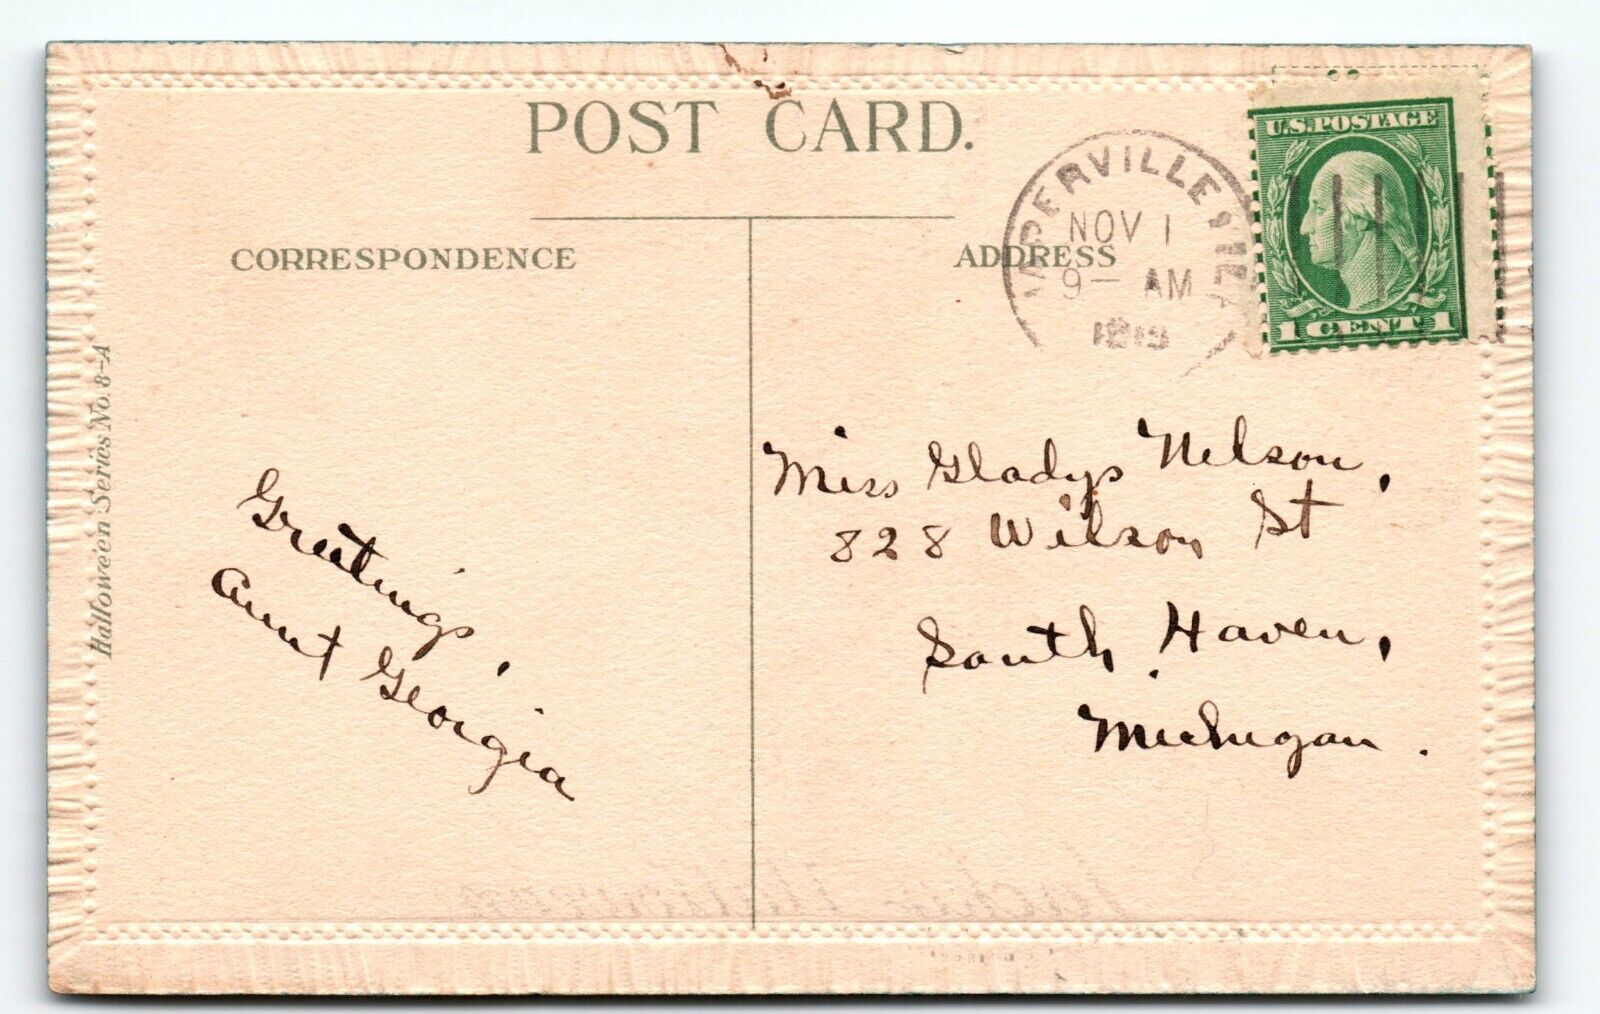 POST CARD.
CORRESPONDENCE
ADDRESS
NOV 1
9- AM
U.S. POSTAGE
1 CENT 1
Halloween Series No. 8-A
Greetings,
Aunt Georgia
Miss Gladys Nelson,
828 Wilson St
South Haven,
Michigan.